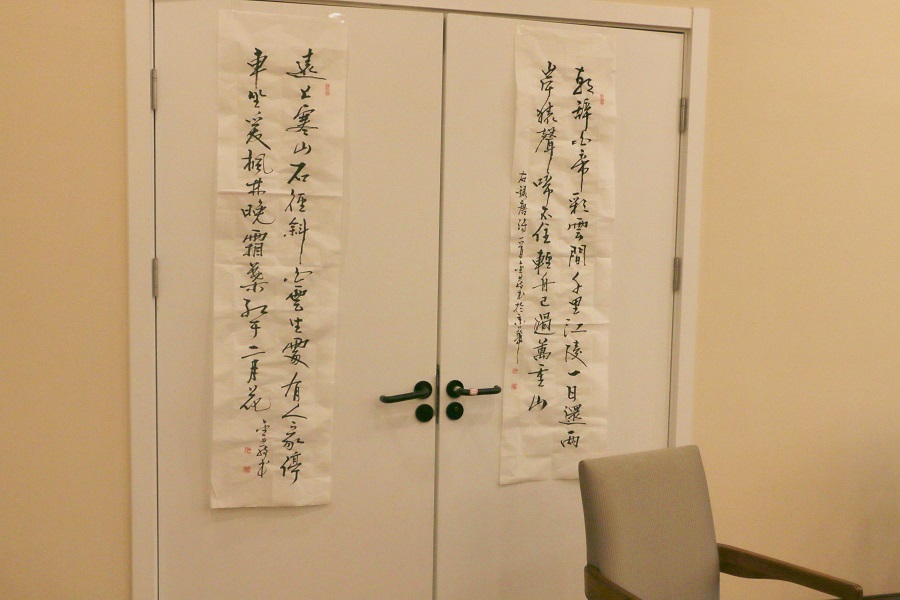 朝辭白帝彩雲間千里江陵一日還兩
岸猿聲啼不住輕舟已過萬重山
右錄唐詩一首金書於京華
遠上寒山石徑斜白雲生處有人家停
車坐愛楓林晚霜葉紅于二月花
金書